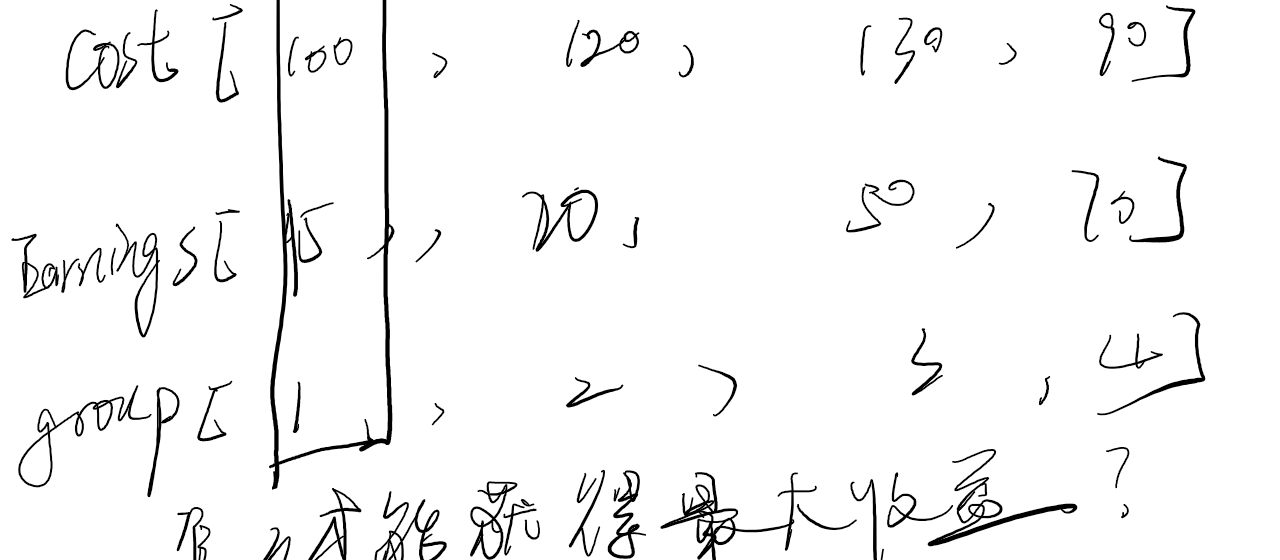 Cost [ 100 , 120 , 130 , 90 ]
Earnings [ 15 , , 20 , 50 , 70 ]
group [ 1 , 2 , 3 , 4 ]
才能获得最大收益 ?